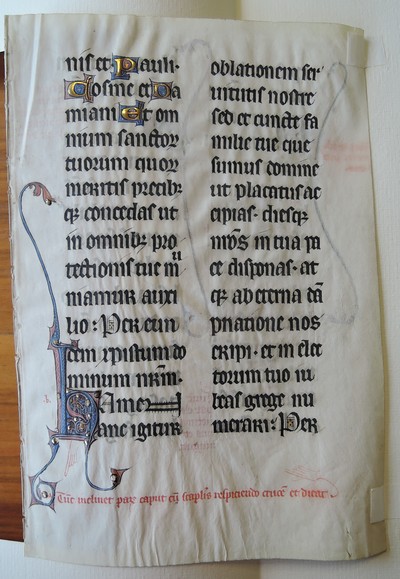 nis et Pauli·
Cosme et Da
miani Et om
nium sanctor
tuorum quor
meritis precibꝫ
qꝫ concedas ut
in omnibꝫ pro
tectionis tue m
u
niamur auxi
lio : Per eun
dem xpistum do
minum nr̄m·
Amen
Hanc igitur
oblationem ser
uitutis nostre
sed et cuncte fa
milie tue que
sumus domine
ut placatus ac
cipias· diesqꝫ
nr̄os in tua pa
ce disponas· at
qꝫ ab eterna dā
pnatione nos
eripi· et in elec
torum tuo iu
beas grege nu
merari : Per
respiciendo crucem et dicat